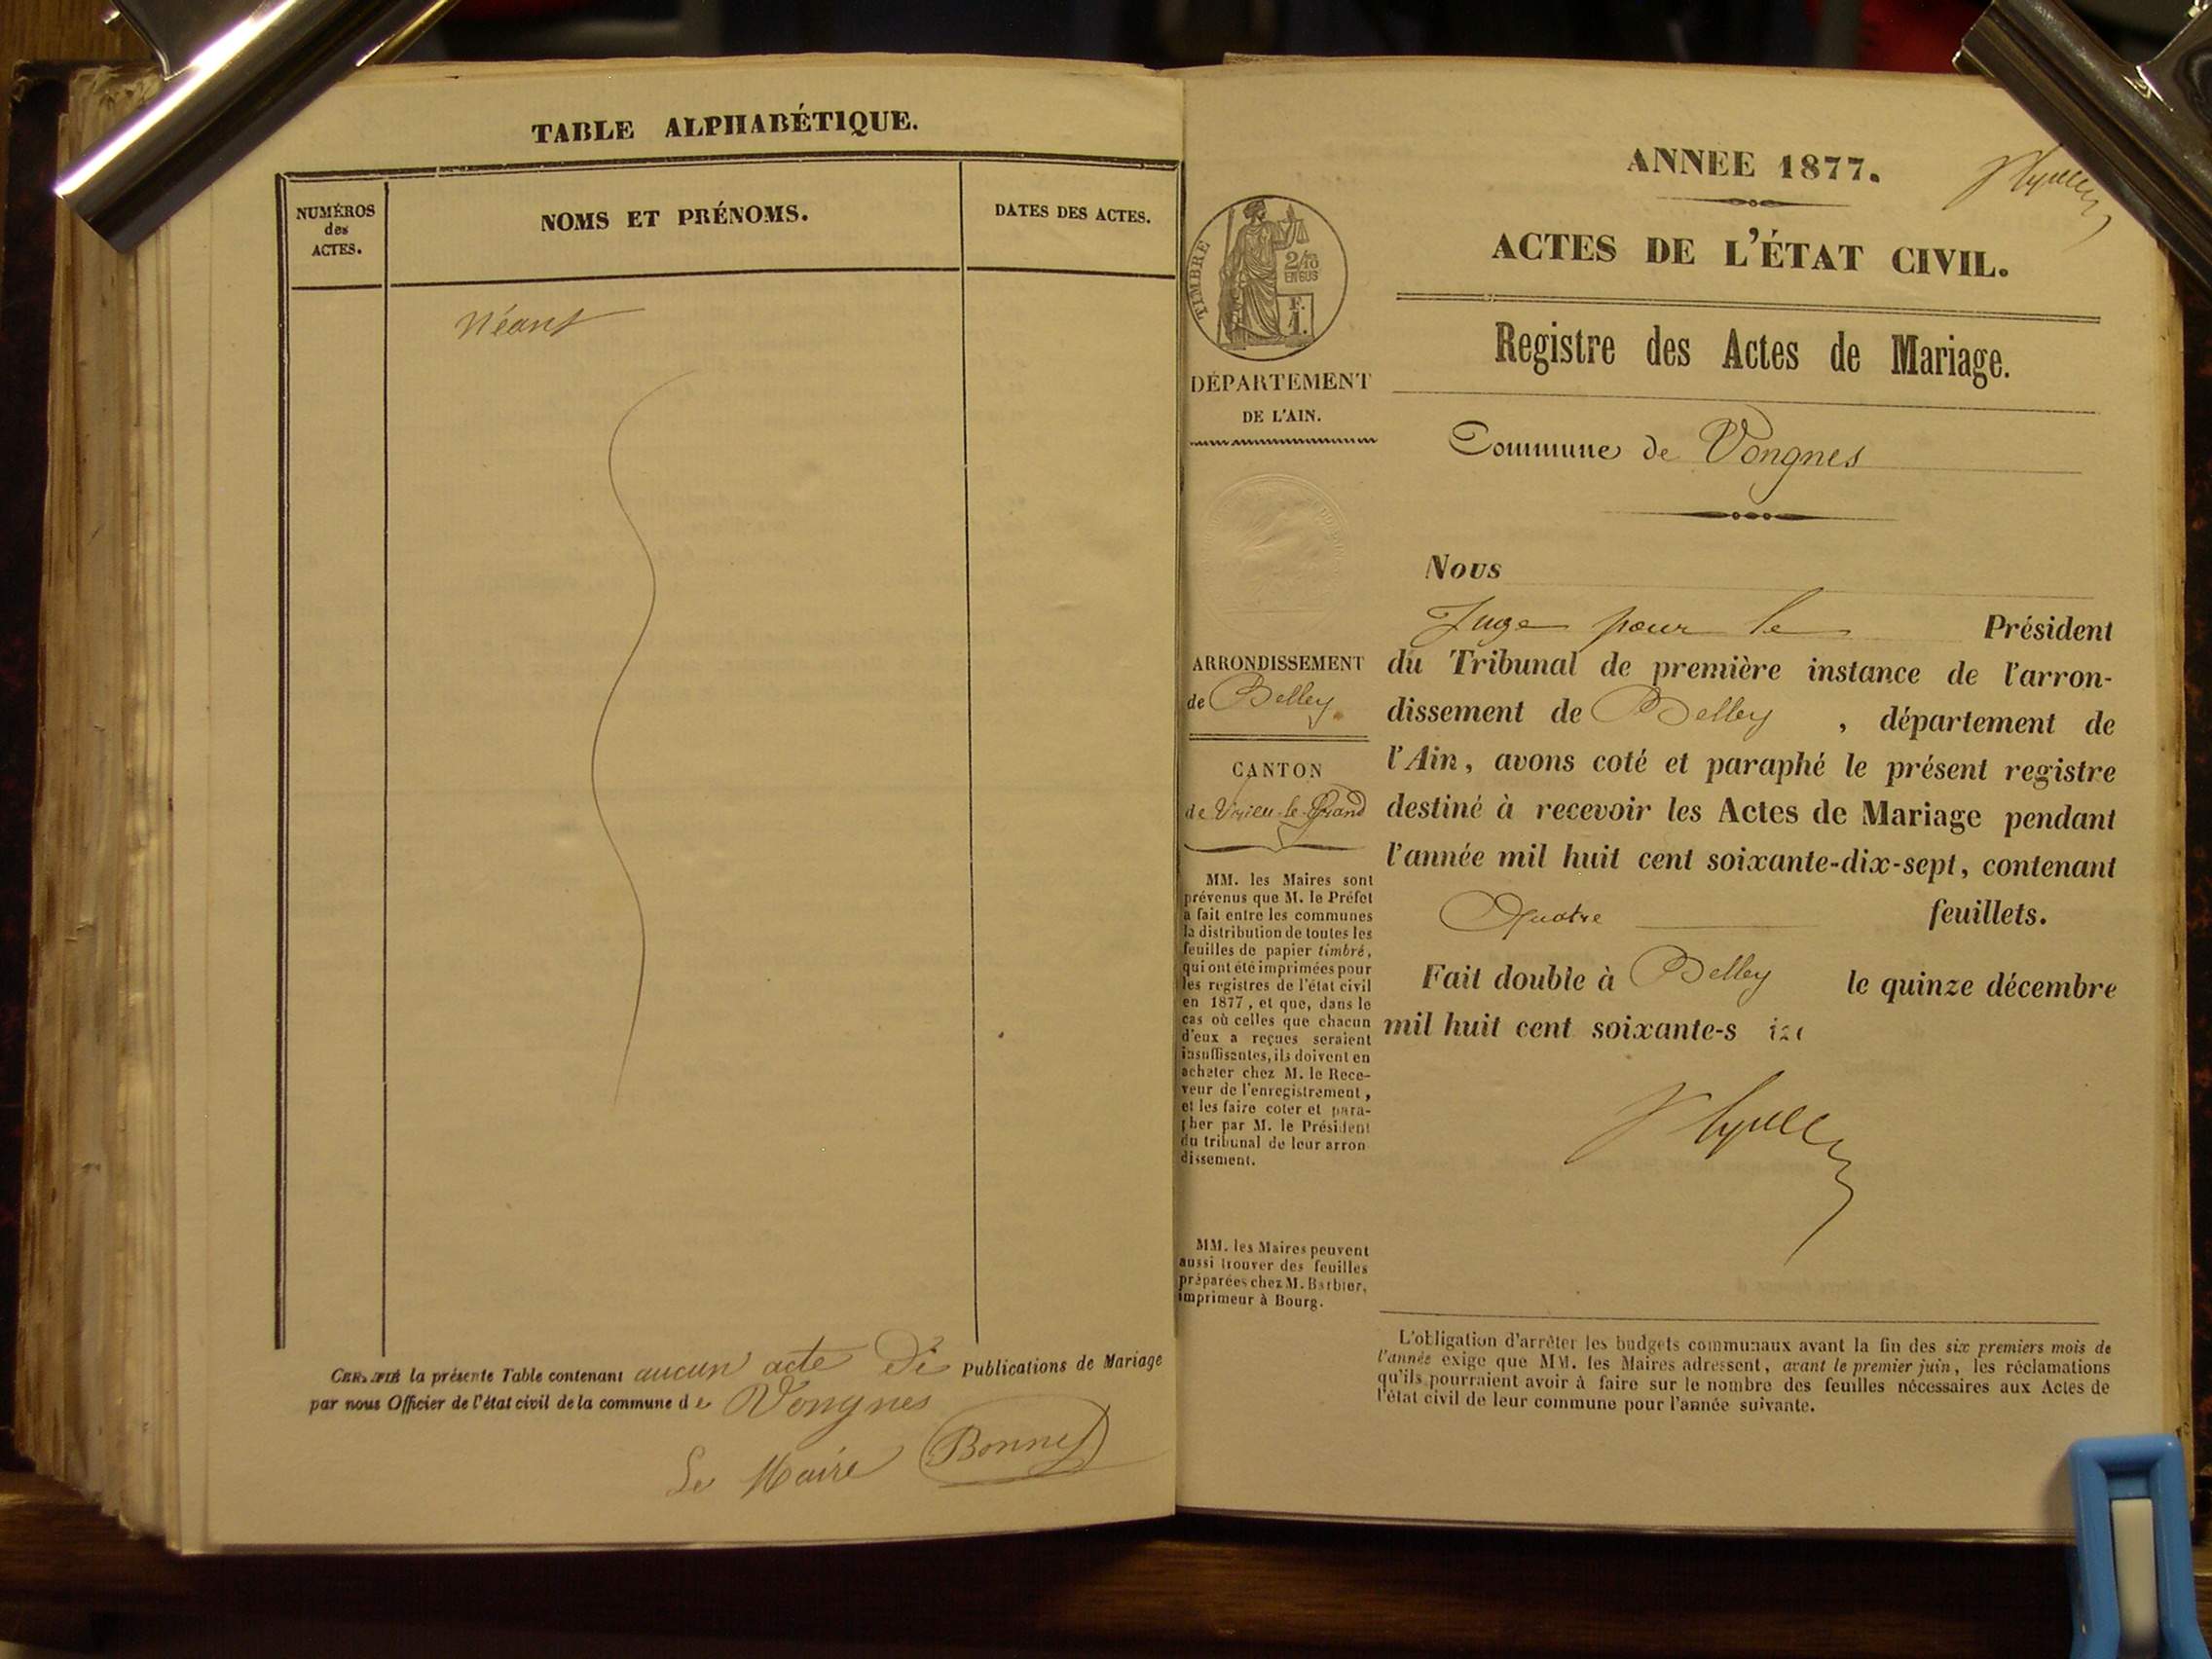 TABLE ALPHABÉTIQUE.
NUMÉROS
des
ACTES.
NOMS ET PRÉNOMS.
DATES DES ACTES.
Néant
CERTIFIÉ la présente Table contenant aucun acte de Publications de Mariage
par nous Officier de l'état civil de la commune de Vongnes
Le Maire Bonnet
ANNÉE 1877.
ACTES DE L'ÉTAT CIVIL.
Registre des Actes de Mariage.
Commune de Vongnes
TIMBRE
2/10
EN SUS
F.
1.
DÉPARTEMENT
DE L'AIN.
ARRONDISSEMENT
de Belley.
CANTON
de Virieu-le-Grand
MM. les Maires sont
prévenus que M. le Préfet
a fait entre les communes
la distribution de toutes les
feuilles de papier timbré,
qui ont été imprimées pour
les registres de l'état civil
en 1877, et que, dans le
cas où celles que chacun
d'eux a reçues seraient
insuffisantes, ils doivent en
acheter chez M. le Rece-
veur de l'enregistrement,
et les faire coter et para-
pher par M. le Président
du tribunal de leur arron
dissement.
MM. les Maires peuvent
aussi trouver des feuilles
préparées chez M. Barbier,
imprimeur à Bourg.
Nous
Juge pour le Président
du Tribunal de première instance de l'arron-
dissement de Belley , département de
l'Ain, avons coté et paraphé le présent registre
destiné à recevoir les Actes de Mariage pendant
l'année mil huit cent soixante-dix-sept, contenant
Quatre feuillets.
Fait double à Belley le quinze décembre
mil huit cent soixante-s
L'obligation d'arrêter les budgets communaux avant la fin des six premiers mois de
l'année exige que MM. les Maires adressent, avant le premier juin, les réclamations
qu'ils pourraient avoir à faire sur le nombre des feuilles nécessaires aux Actes de
l'état civil de leur commune pour l'année suivante.